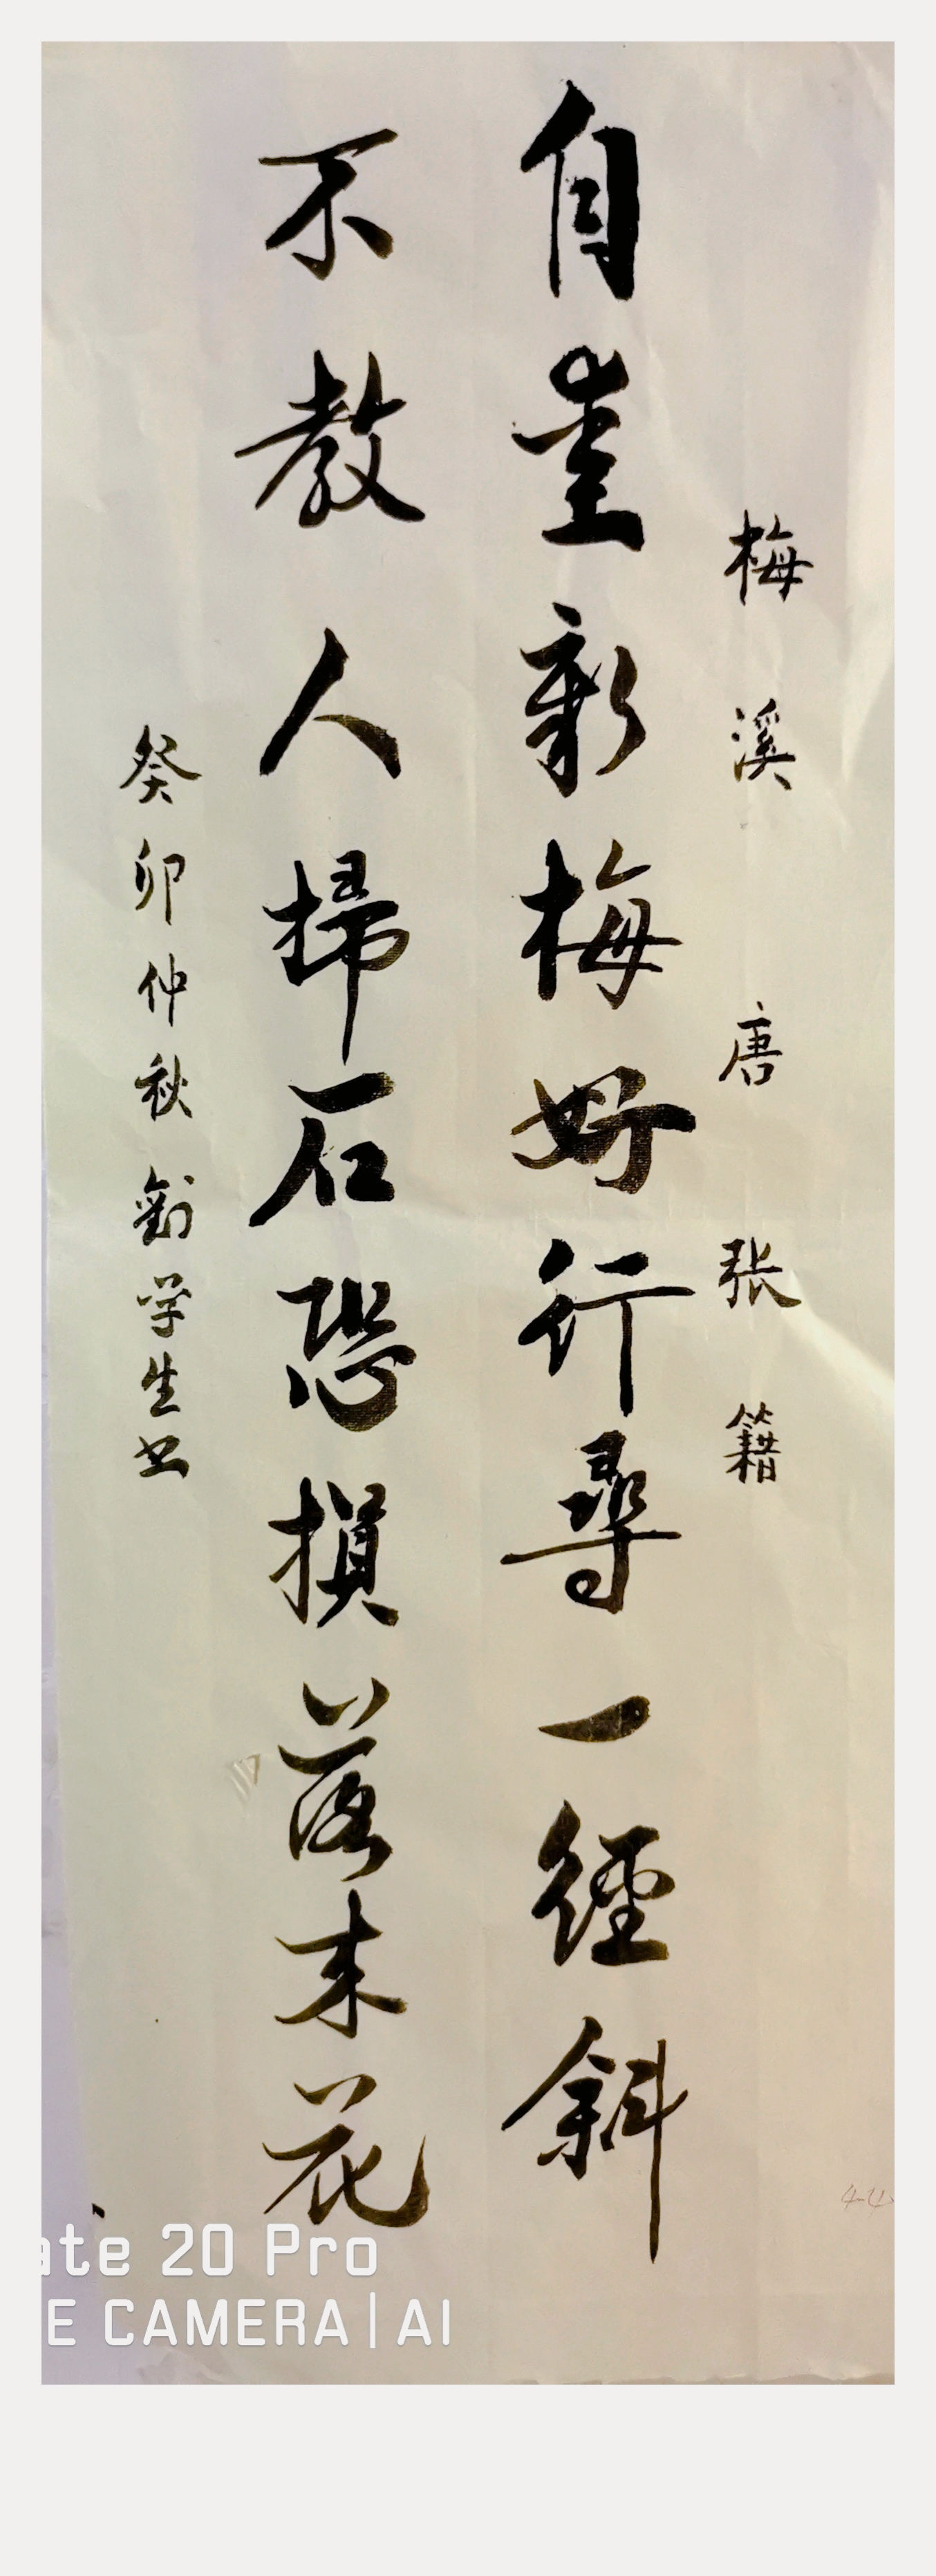 梅溪 唐 张籍
自愛新梅好行尋一徑斜
不教人掃石恐損落来花
癸卯仲秋劉学生书
ate 20 Pro
E CAMERA|AI